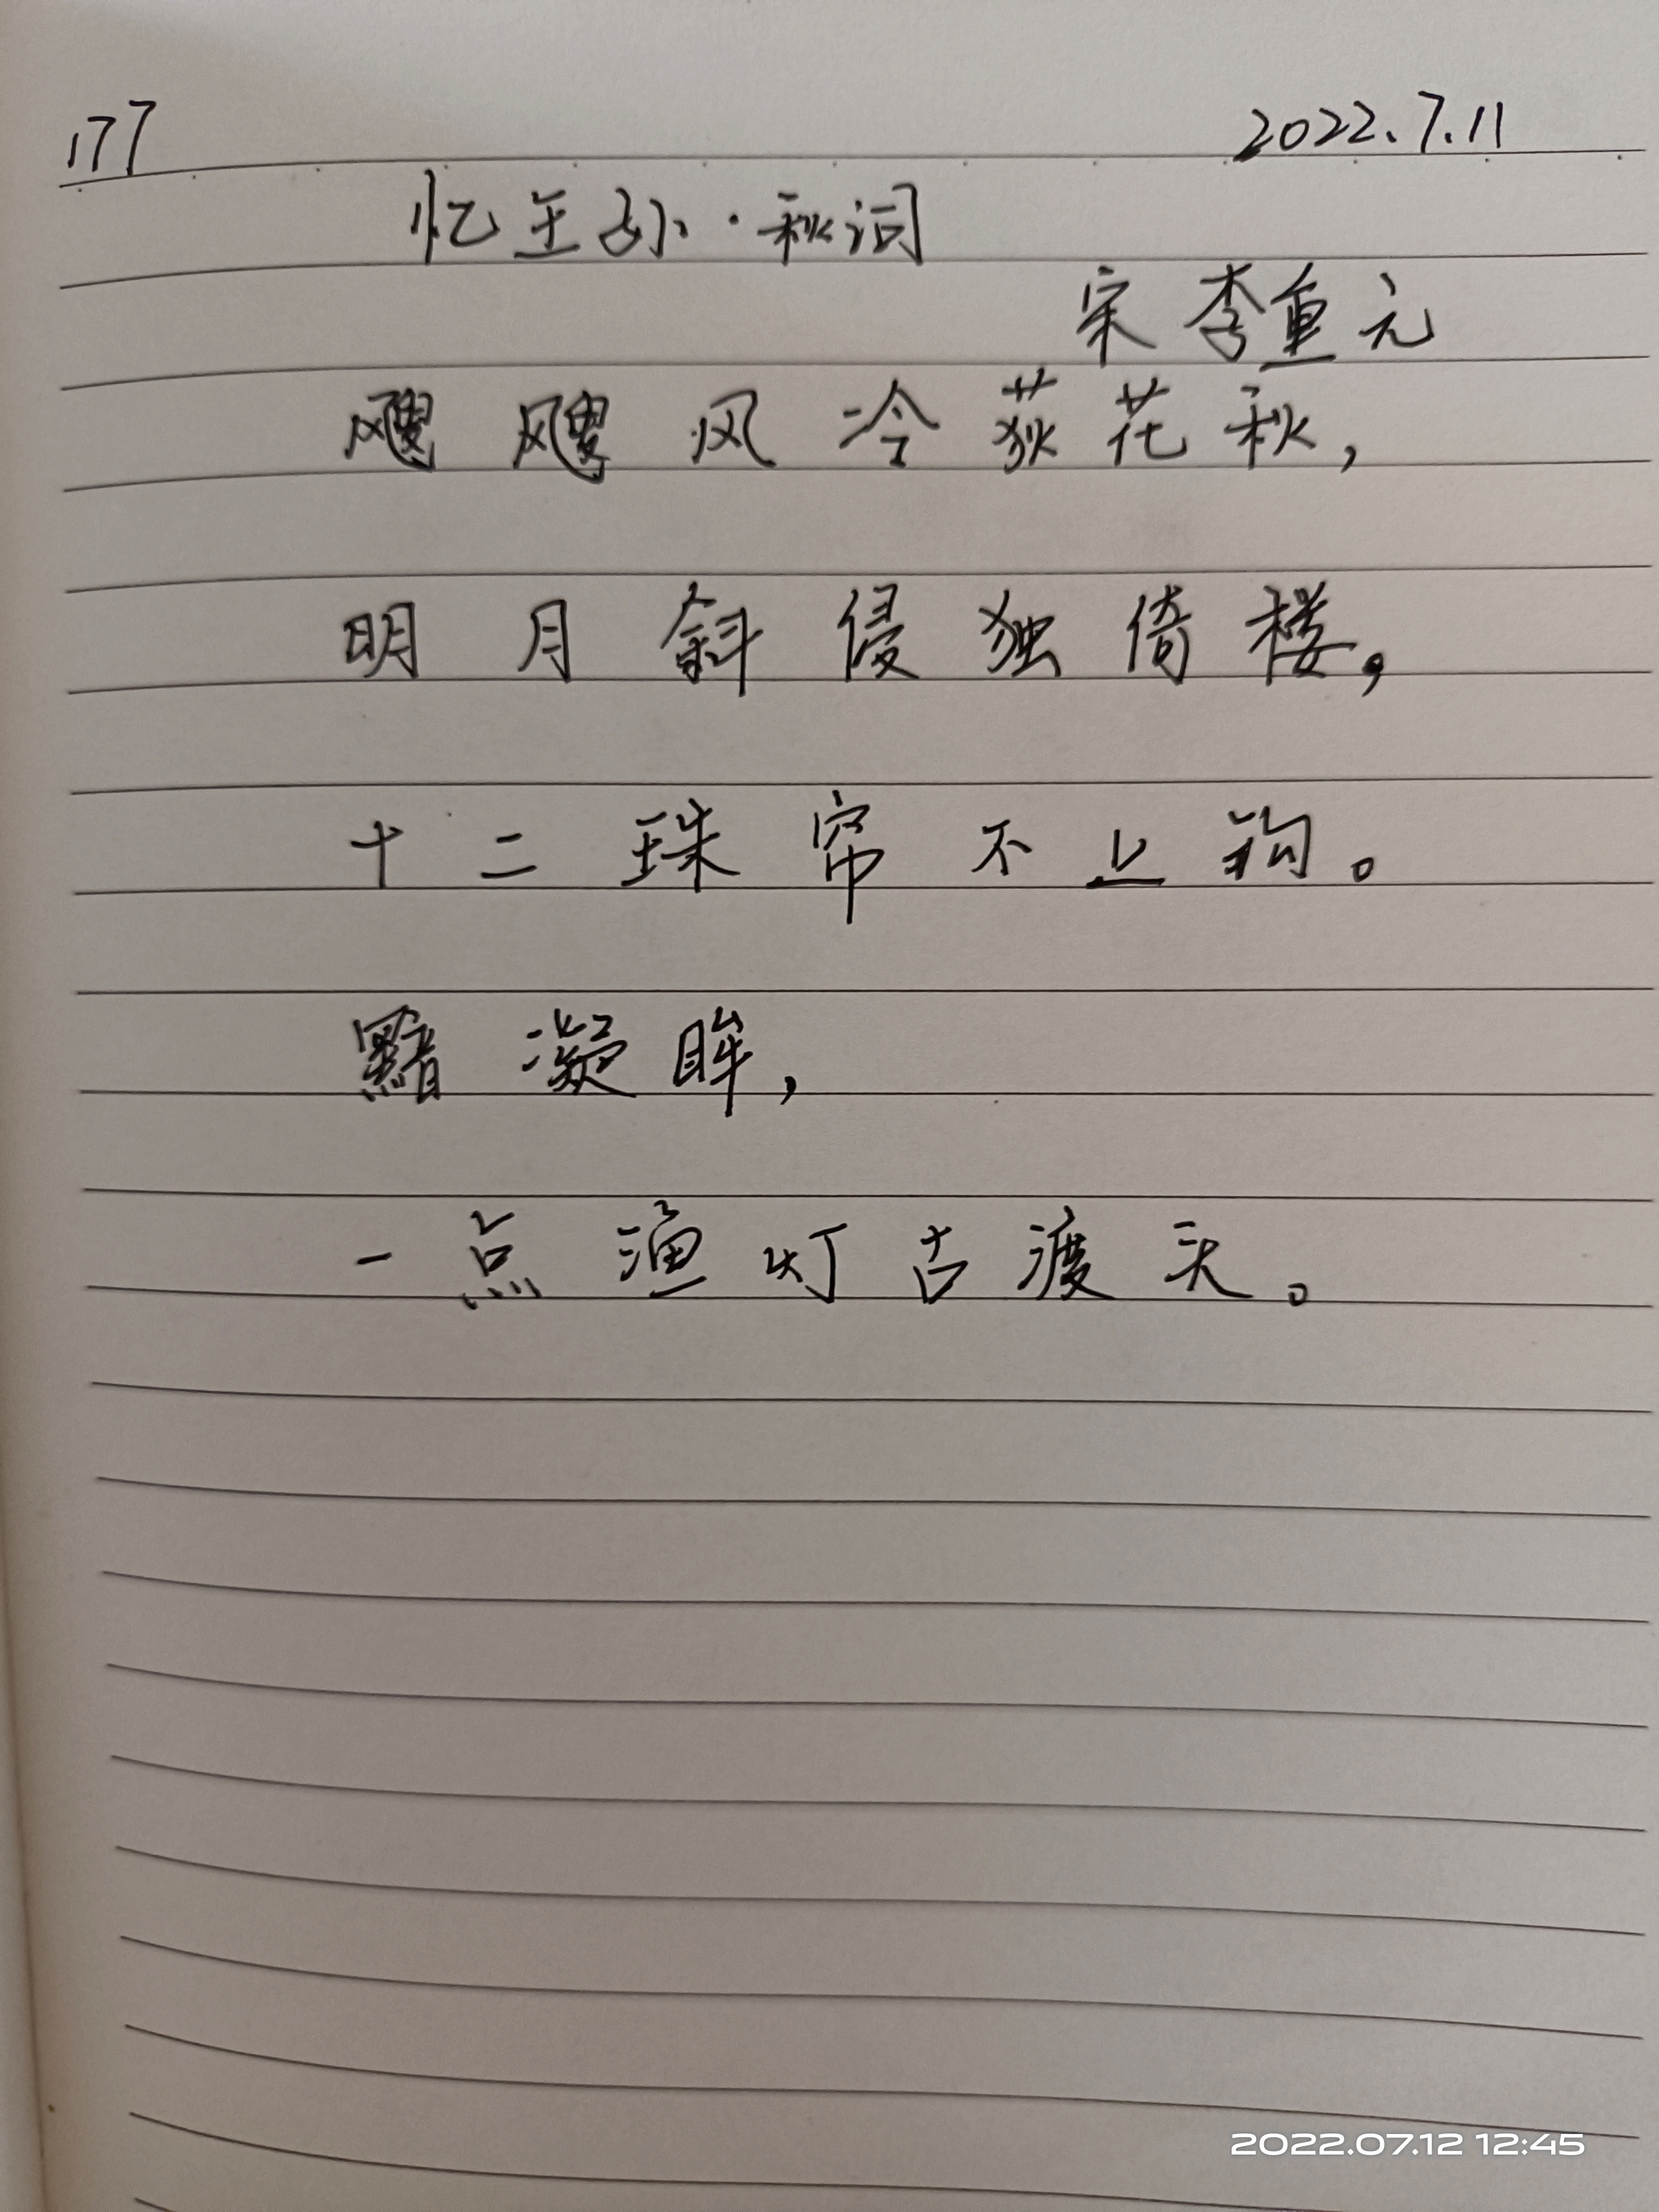 177 2022.7.11
忆王孙·秋词
宋 李重元
飕飕风冷荻花秋，
明月斜侵独倚楼，
十二珠帘不上钩。
黯凝眸，
一点渔灯古渡天。
2022.07.12 12:45